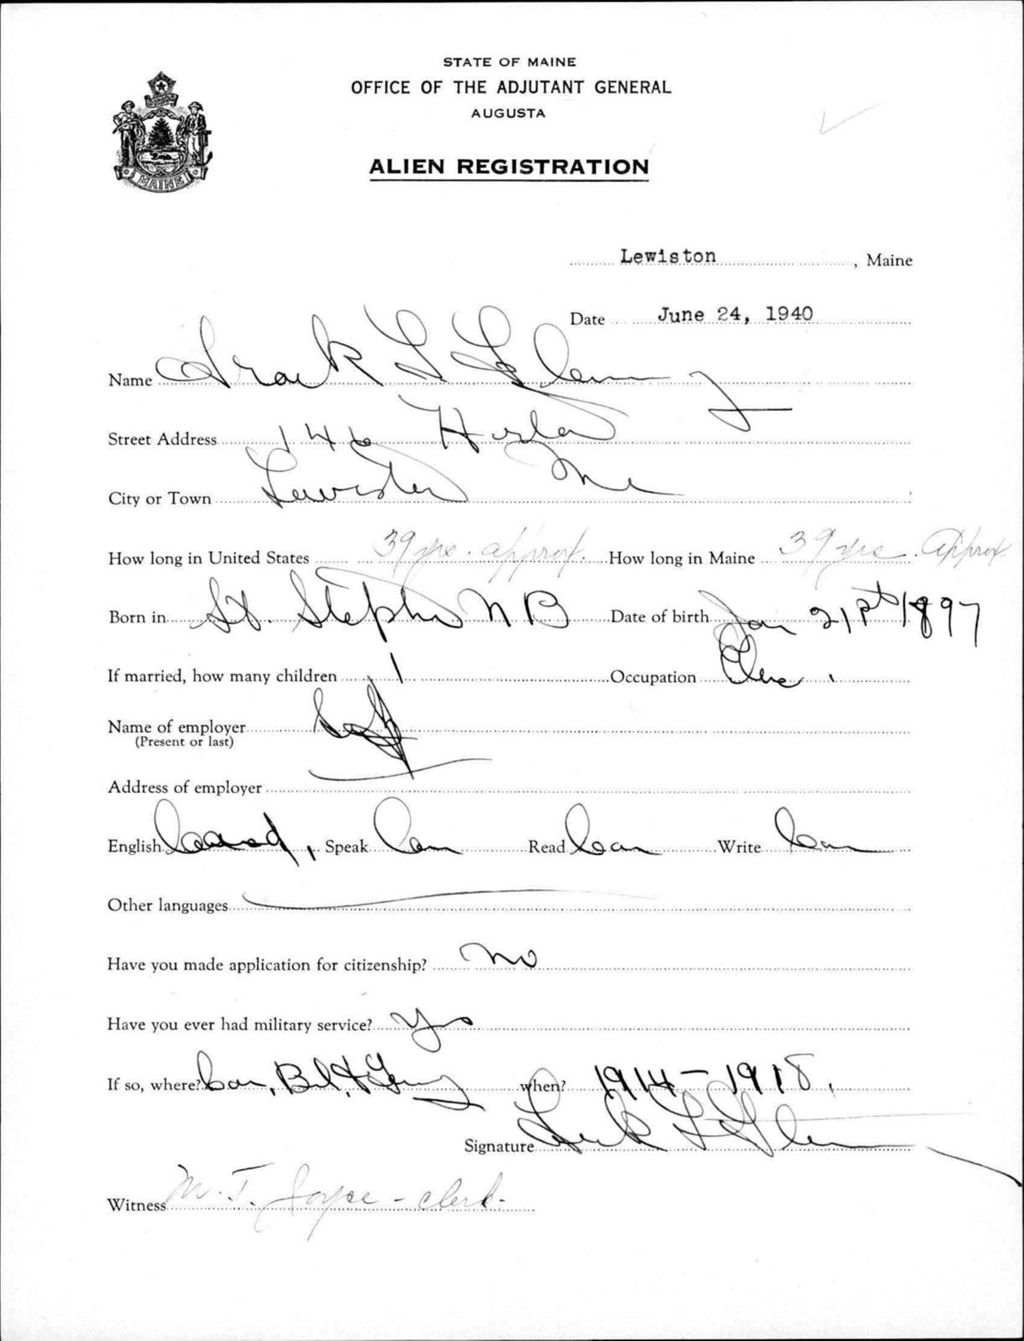 STATE OF MAINE
OFFICE OF THE ADJUTANT GENERAL
AUGUSTA
MAINE
ALIEN REGISTRATION
Lewiston, Maine
Date June 24, 1940
Name Frank L
Street Address 146
City or Town Lewiston Me
How long in United States 39 yrs. approx. How long in Maine 39 yrs. Approx
Born in St. Stephen N B Date of birth Jan 21st 1897
If married, how many children 1 Occupation
Name of employer
(Present or last)
Address of employer
English Speak Can Read Can Write Can
Other languages
Have you made application for citizenship? No
Have you ever had military service? Yes
If so, where? Can, when? 1914-1918.
Signature Frank L
Witness M. J. Joyce - clerk.